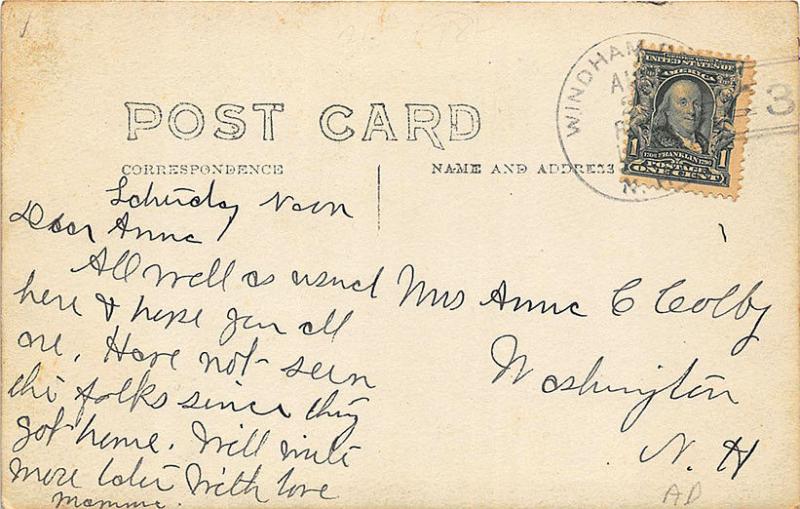 POST CARD
CORRESPONDENCE
NAME AND ADDRESS
WINDHAM
N.
3
UNITED STATES OF
AMERICA
1 1
1706 FRANKLIN 1790
POSTAGE
ONE CENT
Saturday Noon
Dear Anna
All well as usual
here & hope you all
are. Have not seen
the folks since they
got home. Will write
more later With love
Mamma.
Mrs Anna C Colby
Washington
N. H
AD